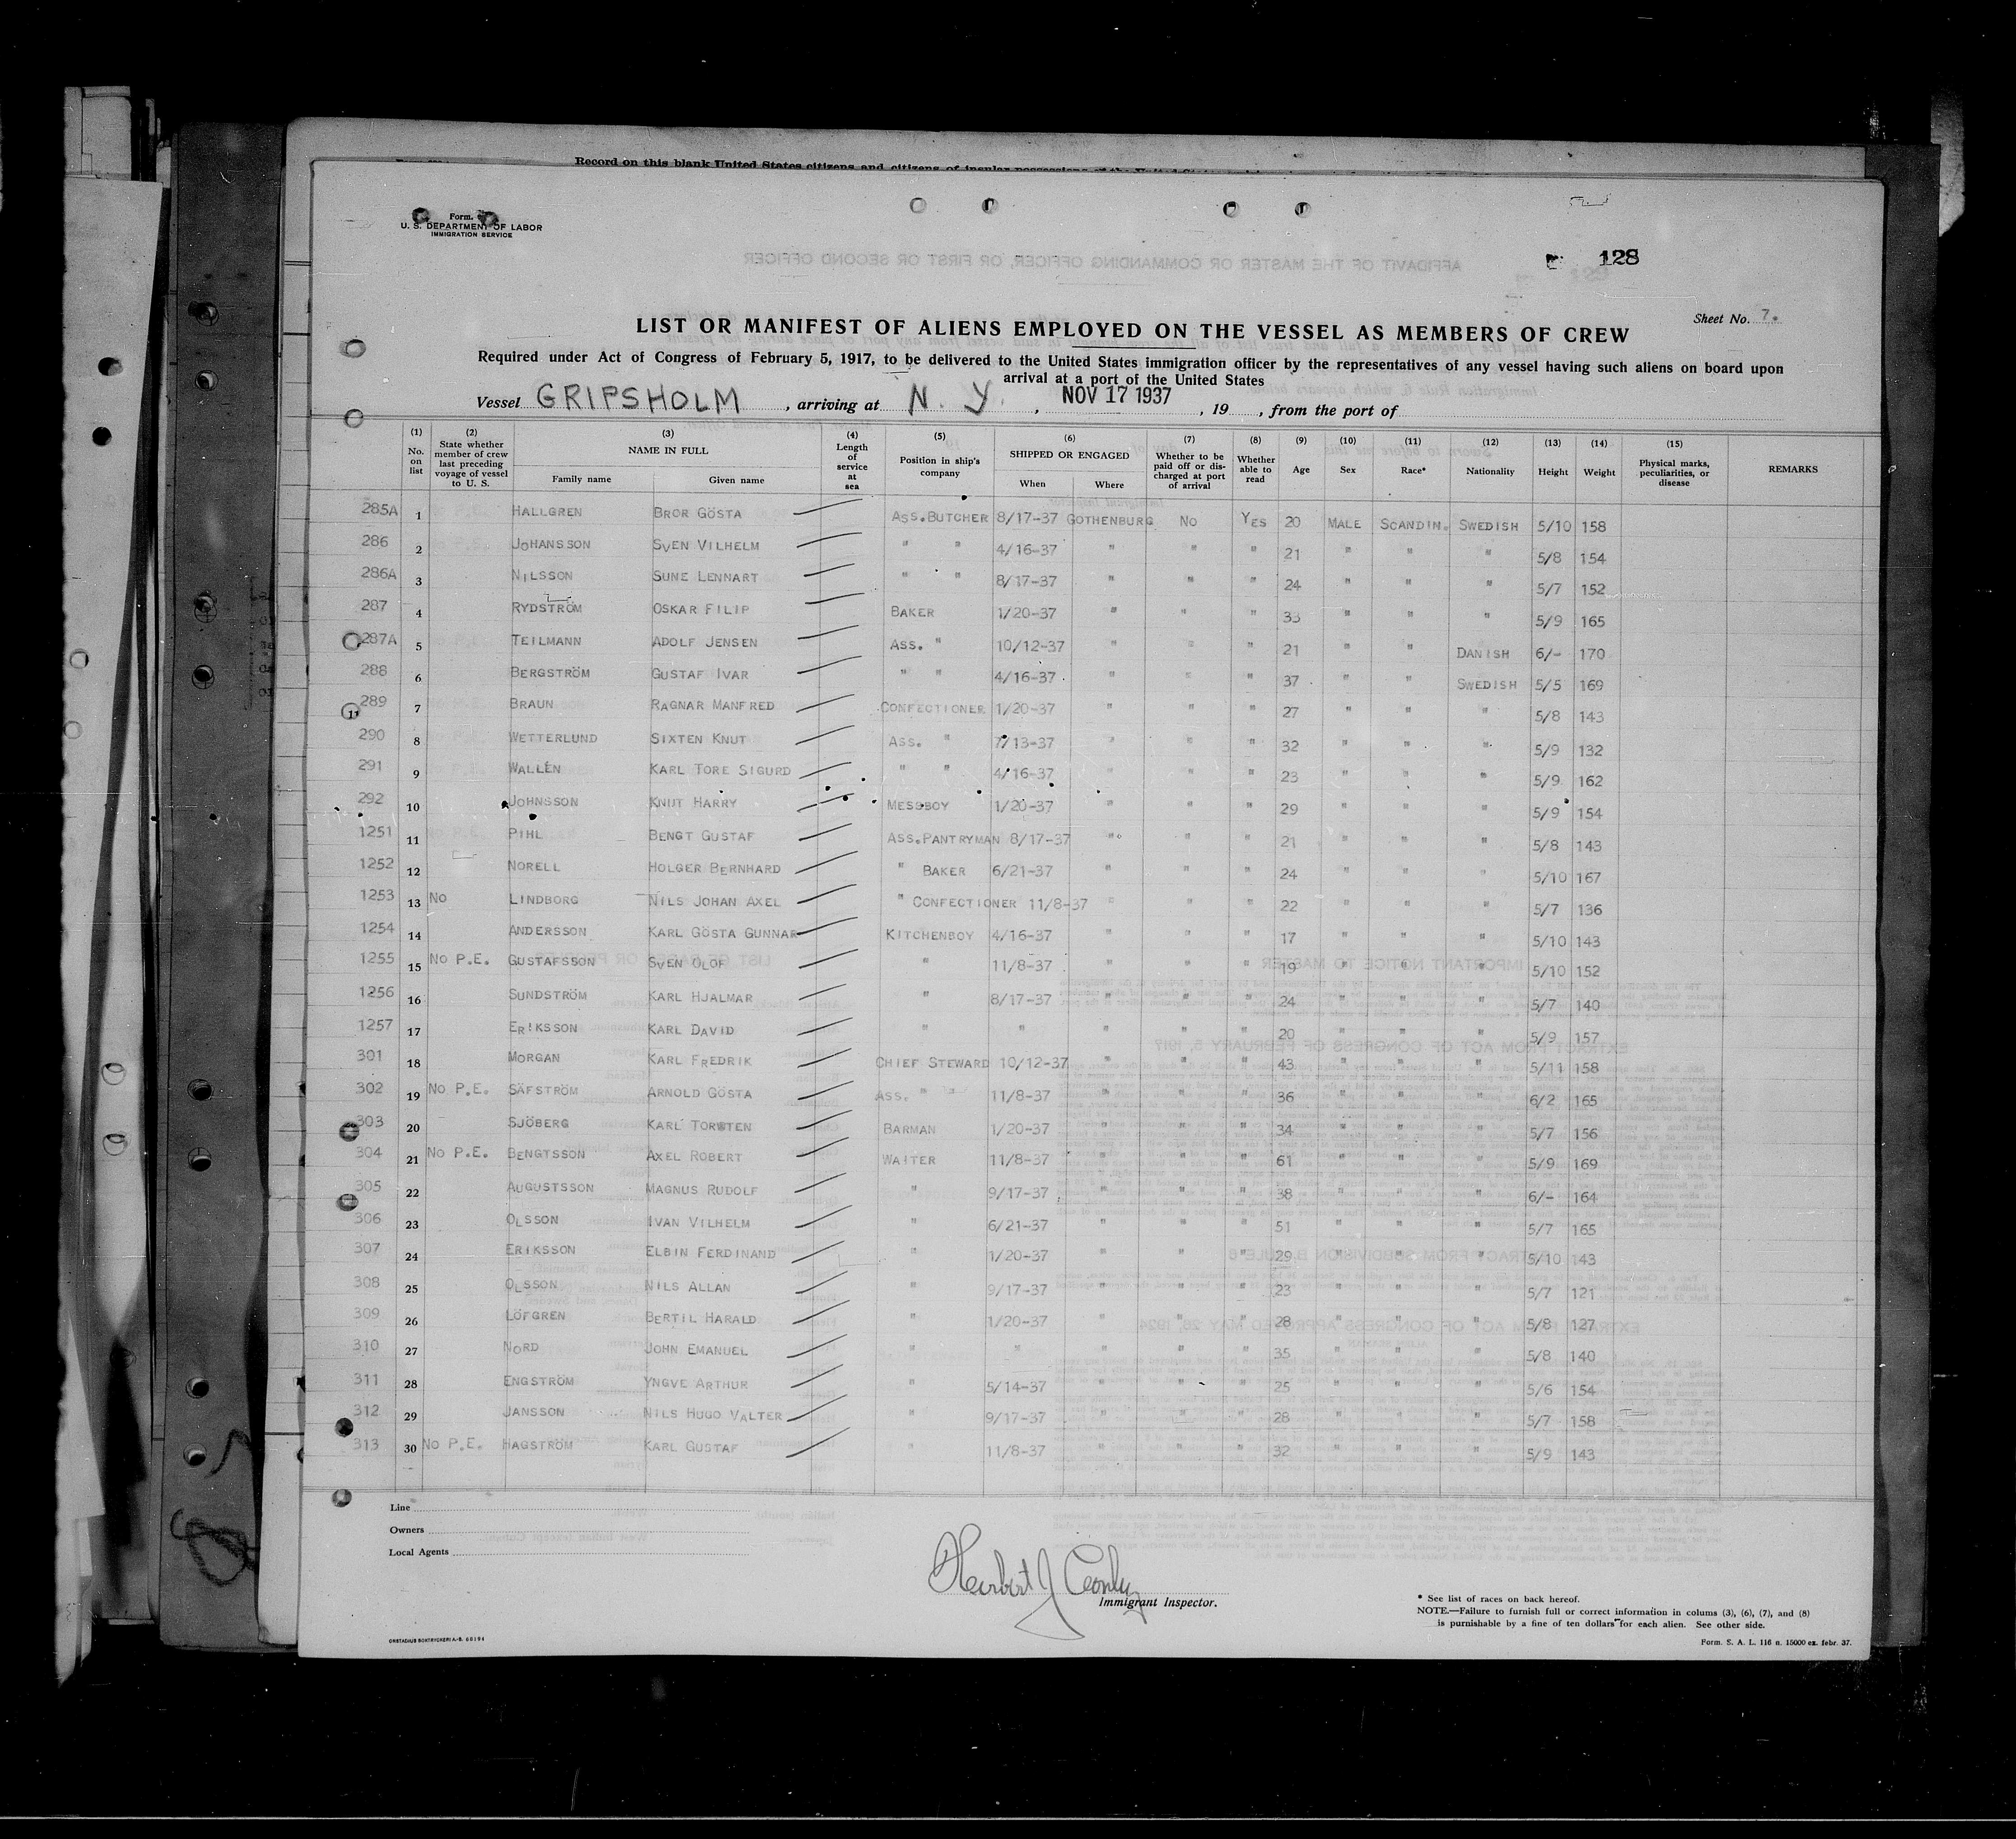 Record on this blank United States citizens and citizens of insular possessions of the United States
Form.
U. S. DEPARTMENT OF LABOR
IMMIGRATION SERVICE
AFFIDAVIT OF THE MASTER OR COMMANDING OFFICER, OR FIRST OR SECOND OFFICER
128
Sheet No. 7.
LIST OR MANIFEST OF ALIENS EMPLOYED ON THE VESSEL AS MEMBERS OF CREW
Required under Act of Congress of February 5, 1917, to be delivered to the United States immigration officer by the representatives of any vessel having such aliens on board upon
arrival at a port of the United States
Vessel GRIPSHOLM, arriving at N. Y., NOV 17 1937, 19, from the port of
(1) No. on list (2) State whether member of crew last preceding voyage of vessel to U. S. (3) NAME IN FULL Family name Given name (4) Length of service at sea (5) Position in ship's company (6) SHIPPED OR ENGAGED When Where (7) Whether to be paid off or discharged at port of arrival (8) Whether able to read (9) Age (10) Sex (11) Race* (12) Nationality (13) Height (14) Weight (15) Physical marks, peculiarities, or disease REMARKS
285A 1 HALLGREN BROR GÖSTA ASS.BUTCHER 8/17-37 GOTHENBURG NO YES 20 MALE SCANDIN. SWEDISH 5/10 158
286 2 JOHANSSON SVEN VILHELM " " 4/16-37 " " " 21 " " " 5/8 154
286A 3 NILSSON SUNE LENNART " " 8/17-37 " " " 24 " " " 5/7 152
287 4 RYDSTRÖM OSKAR FILIP BAKER 1/20-37 " " " 33 " " " 5/9 165
287A 5 TEILMANN ADOLF JENSEN ASS. " 10/12-37 " " " 21 " " DANISH 6/- 170
288 6 BERGSTRÖM GUSTAF IVAR " " 4/16-37 " " " 37 " " SWEDISH 5/5 169
289 7 BRAUN RAGNAR MANFRED CONFECTIONER 1/20-37 " " " 27 " " " 5/8 143
290 8 WETTERLUND SIXTEN KNUT ASS. " 7/13-37 " " " 32 " " " 5/9 132
291 9 WALLÉN KARL TORE SIGURD " " 4/16-37 " " " 23 " " " 5/9 162
292 10 JOHNSSON KNUT HARRY MESSBOY 1/20-37 " " " 29 " " " 5/9 154
1251 11 PIHL BENGT GUSTAF ASS.PANTRYMAN 8/17-37 " " " 21 " " " 5/8 143
1252 12 NORELL HOLGER BERNHARD " BAKER 6/21-37 " " " 24 " " " 5/10 167
1253 13 NO LINDBORG NILS JOHAN AXEL " CONFECTIONER 11/8-37 " " " 22 " " " 5/7 136
1254 14 ANDERSSON KARL GÖSTA GUNNAR KITCHENBOY 4/16-37 " " " 17 " " " 5/10 143
1255 15 NO P.E. GUSTAFSSON SVEN OLOF " 11/8-37 " " " 19 " " " 5/10 152
1256 16 SUNDSTRÖM KARL HJALMAR " 8/17-37 " " " 24 " " " 5/7 140
1257 17 ERIKSSON KARL DAVID " " " " " 20 " " " 5/9 157
301 18 MORGAN KARL FREDRIK CHIEF STEWARD 10/12-37 " " " 43 " " " 5/11 158
302 19 NO P.E. SÄFSTRÖM ARNOLD GÖSTA ASS. " " 11/8-37 " " " 36 " " " 6/2 165
303 20 SJÖBERG KARL TORSTEN BARMAN 1/20-37 " " " 34 " " " 5/7 156
304 21 NO P.E. BENGTSSON AXEL ROBERT WAITER 11/8-37 " " " 61 " " " 5/9 169
305 22 AUGUSTSSON MAGNUS RUDOLF " 9/17-37 " " " 38 " " " 6/- 164
306 23 OLSSON IVAN VILHELM " 6/21-37 " " " 51 " " " 5/7 165
307 24 ERIKSSON ELBIN FERDINAND " 1/20-37 " " " 29 " " " 5/10 143
308 25 OLSSON NILS ALLAN " 9/17-37 " " " 23 " " " 5/7 121
309 26 LÖFGREN BERTIL HARALD " 1/20-37 " " " 28 " " " 5/8 127
310 27 NORD JOHN EMANUEL " " " " " 35 " " " 5/8 140
311 28 ENGSTRÖM YNGVE ARTHUR " 5/14-37 " " " 25 " " " 5/6 154
312 29 JANSSON NILS HUGO VALTER " 9/17-37 " " " 28 " " " 5/7 158
313 30 NO P.E. HAGSTRÖM KARL GUSTAF " 11/8-37 " " " 32 " " " 5/9 143
Line
Owners
Local Agents
Herbert J
Immigrant Inspector.
* See list of races on back hereof.
NOTE.—Failure to furnish full or correct information in colums (3), (6), (7), and (8)
is punishable by a fine of ten dollars for each alien. See other side.
Form. S. A. L. 116 n. 15000 ex. febr. 37.